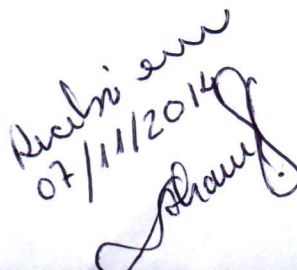 Recebi em
07/11/2014